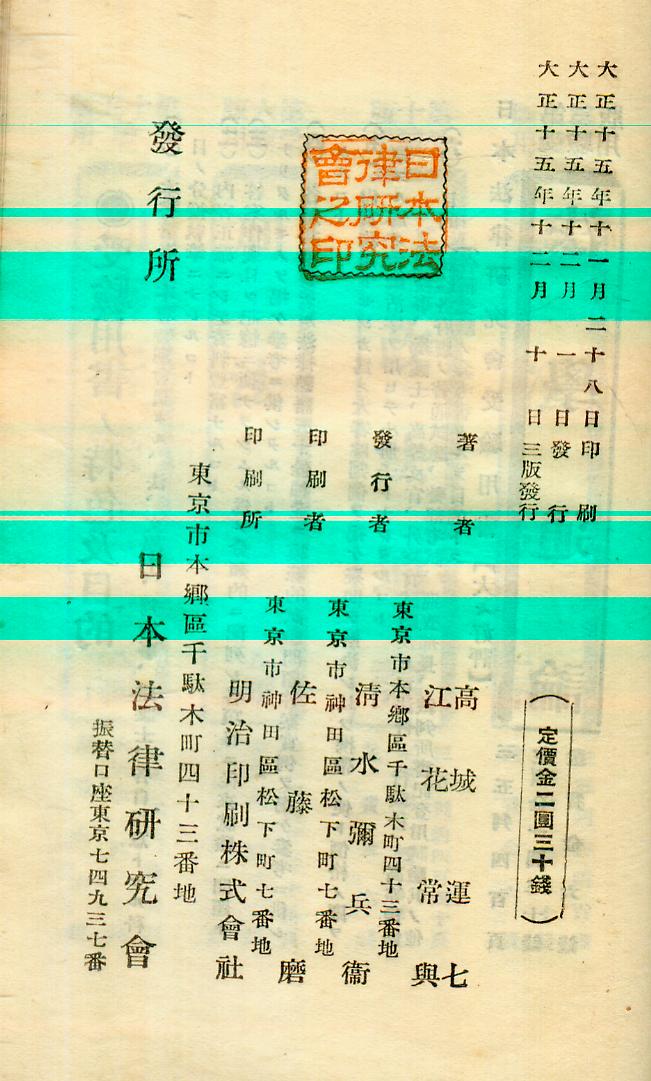 大正十五年十一月二十八日印刷
大正十五年十二月一日發行
大正十五年十二月十日三版發行
定價金二圓三十錢
著者
高城運七
江花常與
發行者
東京市本鄕區千駄木町四十三番地
淸水彌兵衞
印刷者
東京市神田區松下町七番地
佐藤磨
印刷所
東京市神田區松下町七番地
明治印刷株式會社
日本法律硏究會之印
發行所
東京市本鄕區千駄木町四十三番地
日本法律硏究會
振替口座東京七四九三七番